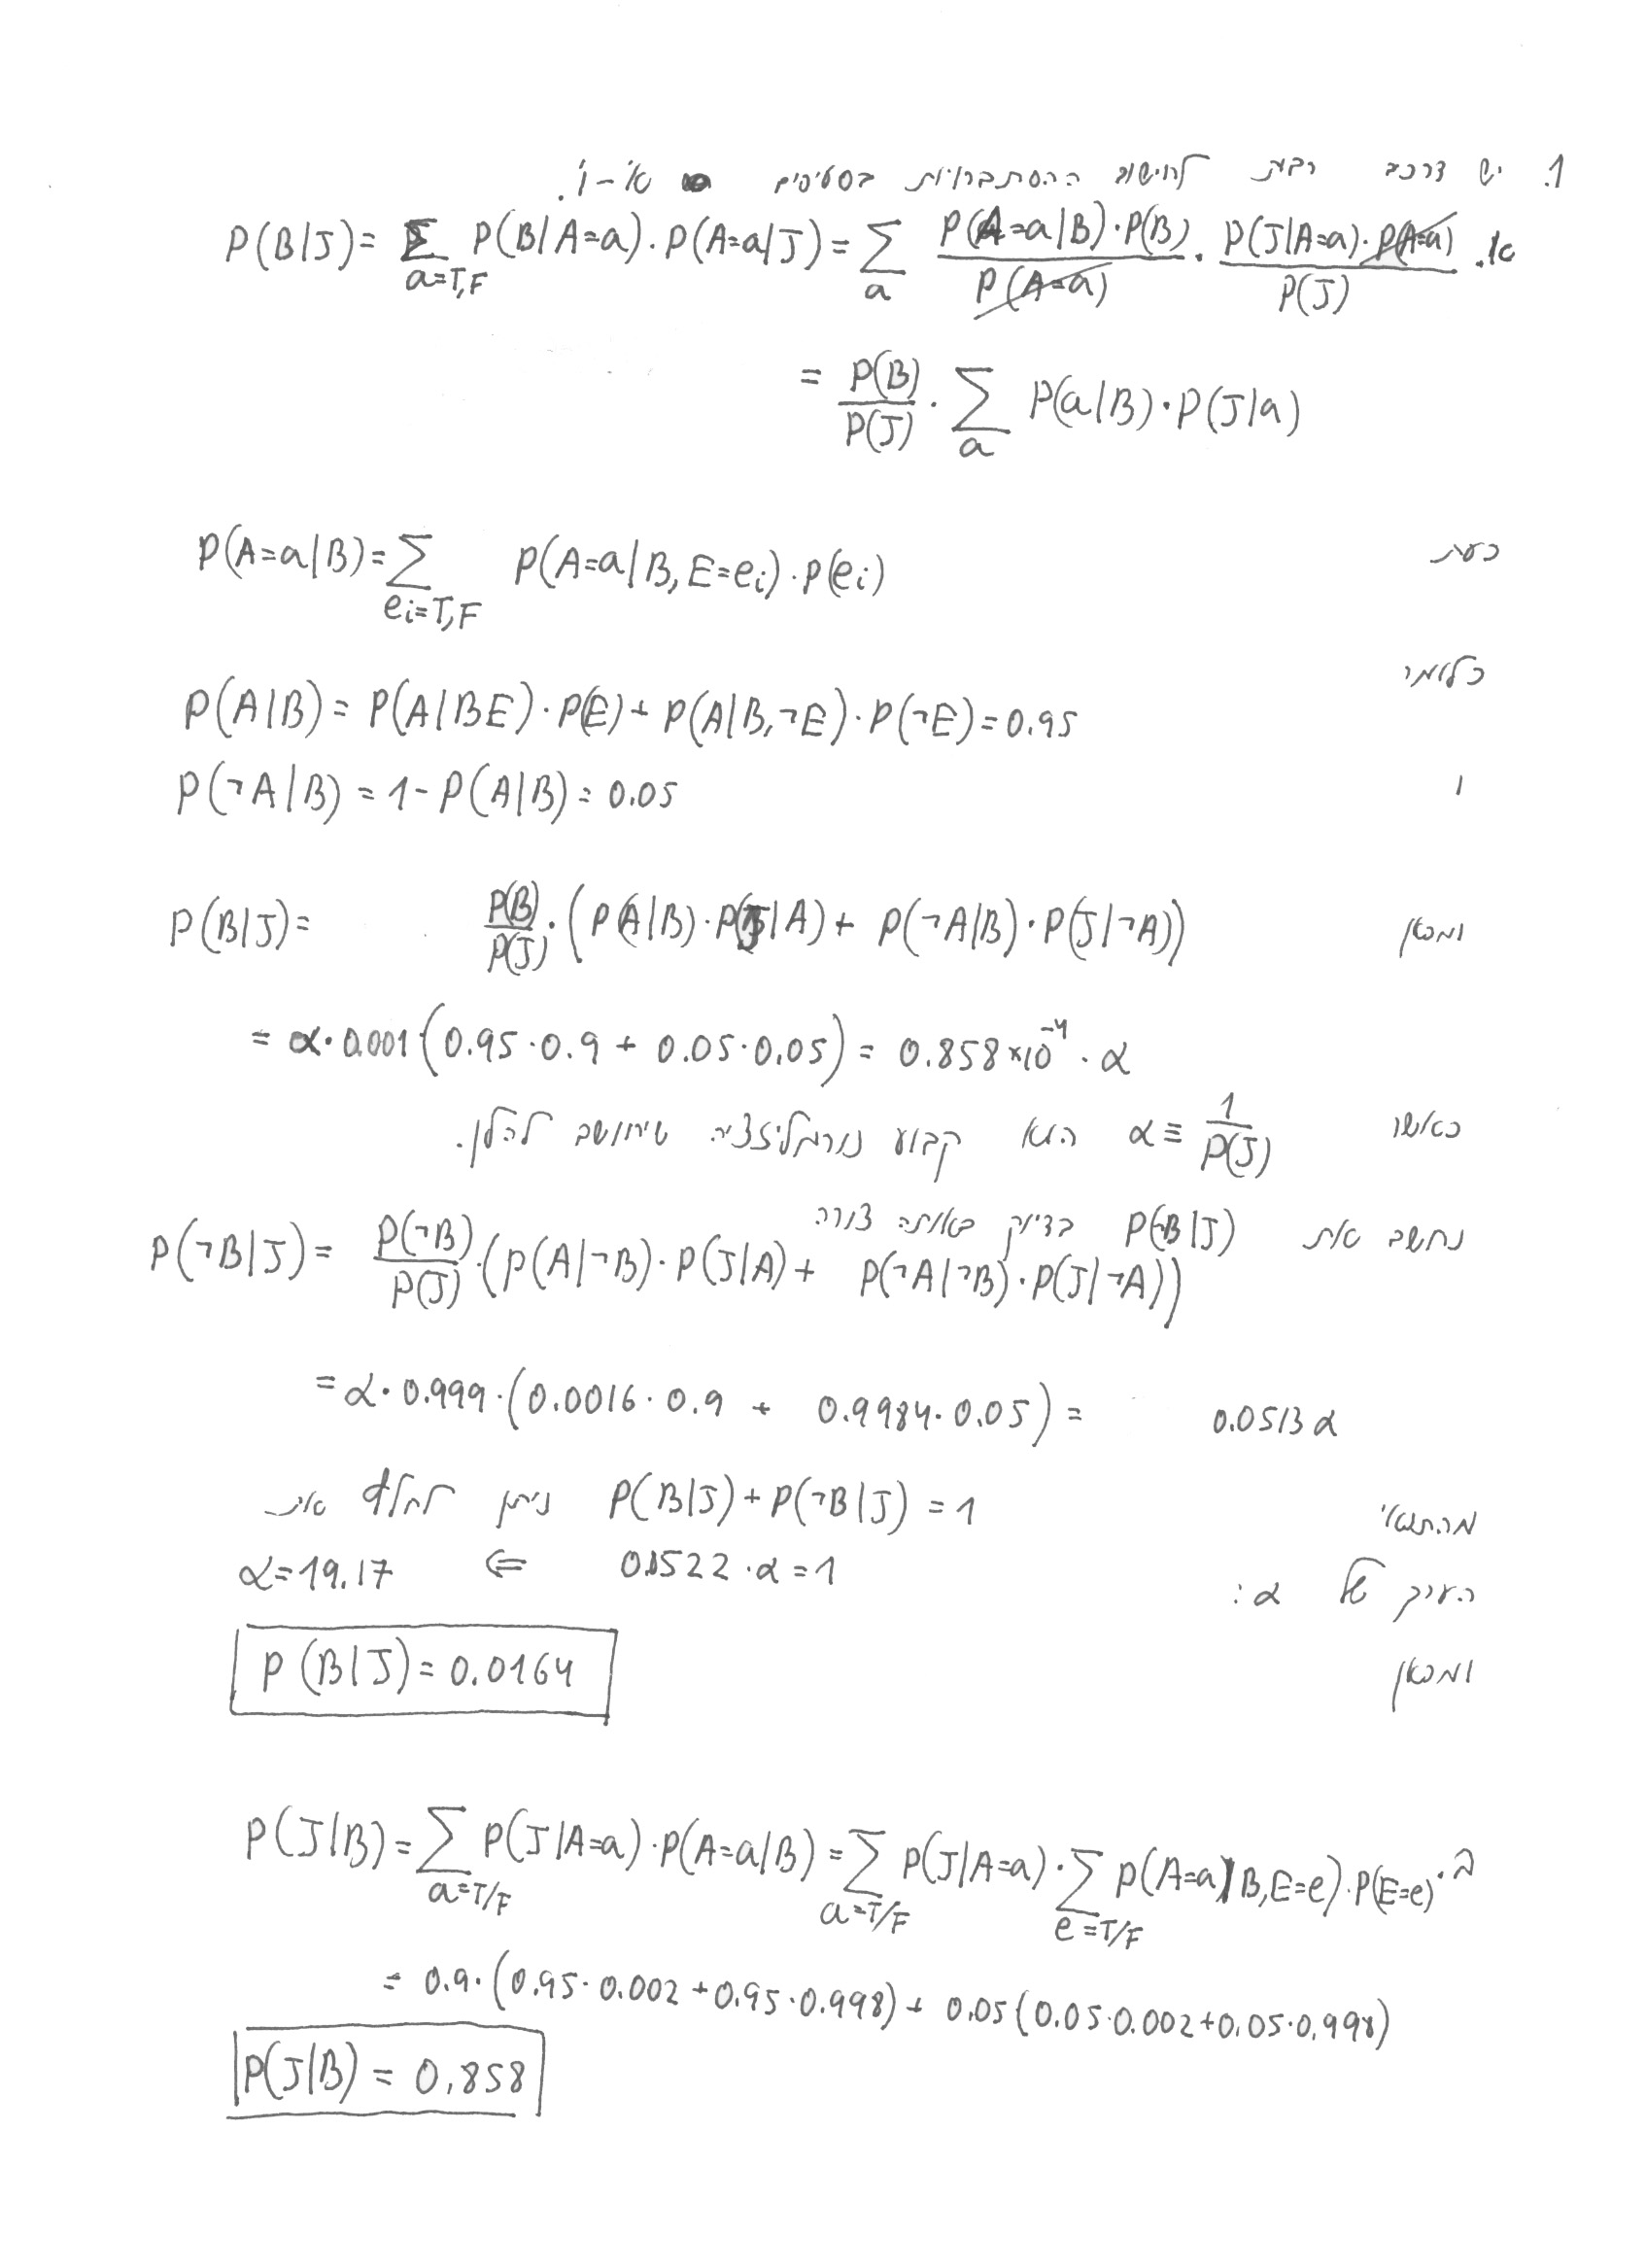 1. יש דרכים רבות לחישוב ההסתברויות בסעיפים א'-ו'.
א. P(B|J) = Σ_{a=T,F} P(B|A=a)·P(A=a|J) = Σ_a (P(A=a|B)·P(B))/P(A=a) · (P(J|A=a)·P(A=a))/P(J)
= P(B)/P(J) · Σ_a P(a|B)·P(J|a)
כעת P(A=a|B) = Σ_{ei=T,F} P(A=a|B,E=ei)·P(ei)
כלומר
P(A|B) = P(A|BE)·P(E) + P(A|B,¬E)·P(¬E) = 0.95
ו P(¬A|B) = 1-P(A|B) = 0.05
ומכאן P(B|J) = P(B)/P(J)·(P(A|B)·P(J|A) + P(¬A|B)·P(J|¬A))
= α·0.001(0.95·0.9 + 0.05·0.05) = 0.858×10^-4·α
כאשר α ≡ 1/P(J) הוא קבוע נורמליזציה שיחושב להלן.
נחשב את P(¬B|J) בדיוק באותה צורה
P(¬B|J) = P(¬B)/P(J)·(P(A|¬B)·P(J|A) + P(¬A|¬B)·P(J|¬A))
= α·0.999·(0.0016·0.9 + 0.9984·0.05) = 0.0513α
מהתנאי P(B|J)+P(¬B|J) = 1 ניתן לחלץ את
הערך של α: 0.0522·α=1 ⇐ α=19.17
ומכאן P(B|J) = 0.0164
ב. P(J|B) = Σ_{a=T/F} P(J|A=a)·P(A=a|B) = Σ_{a=T/F} P(J|A=a)·Σ_{e=T/F} P(A=a|B,E=e)·P(E=e)
= 0.9·(0.95·0.002+0.95·0.998) + 0.05(0.05·0.002+0.05·0.998)
P(J|B) = 0.858